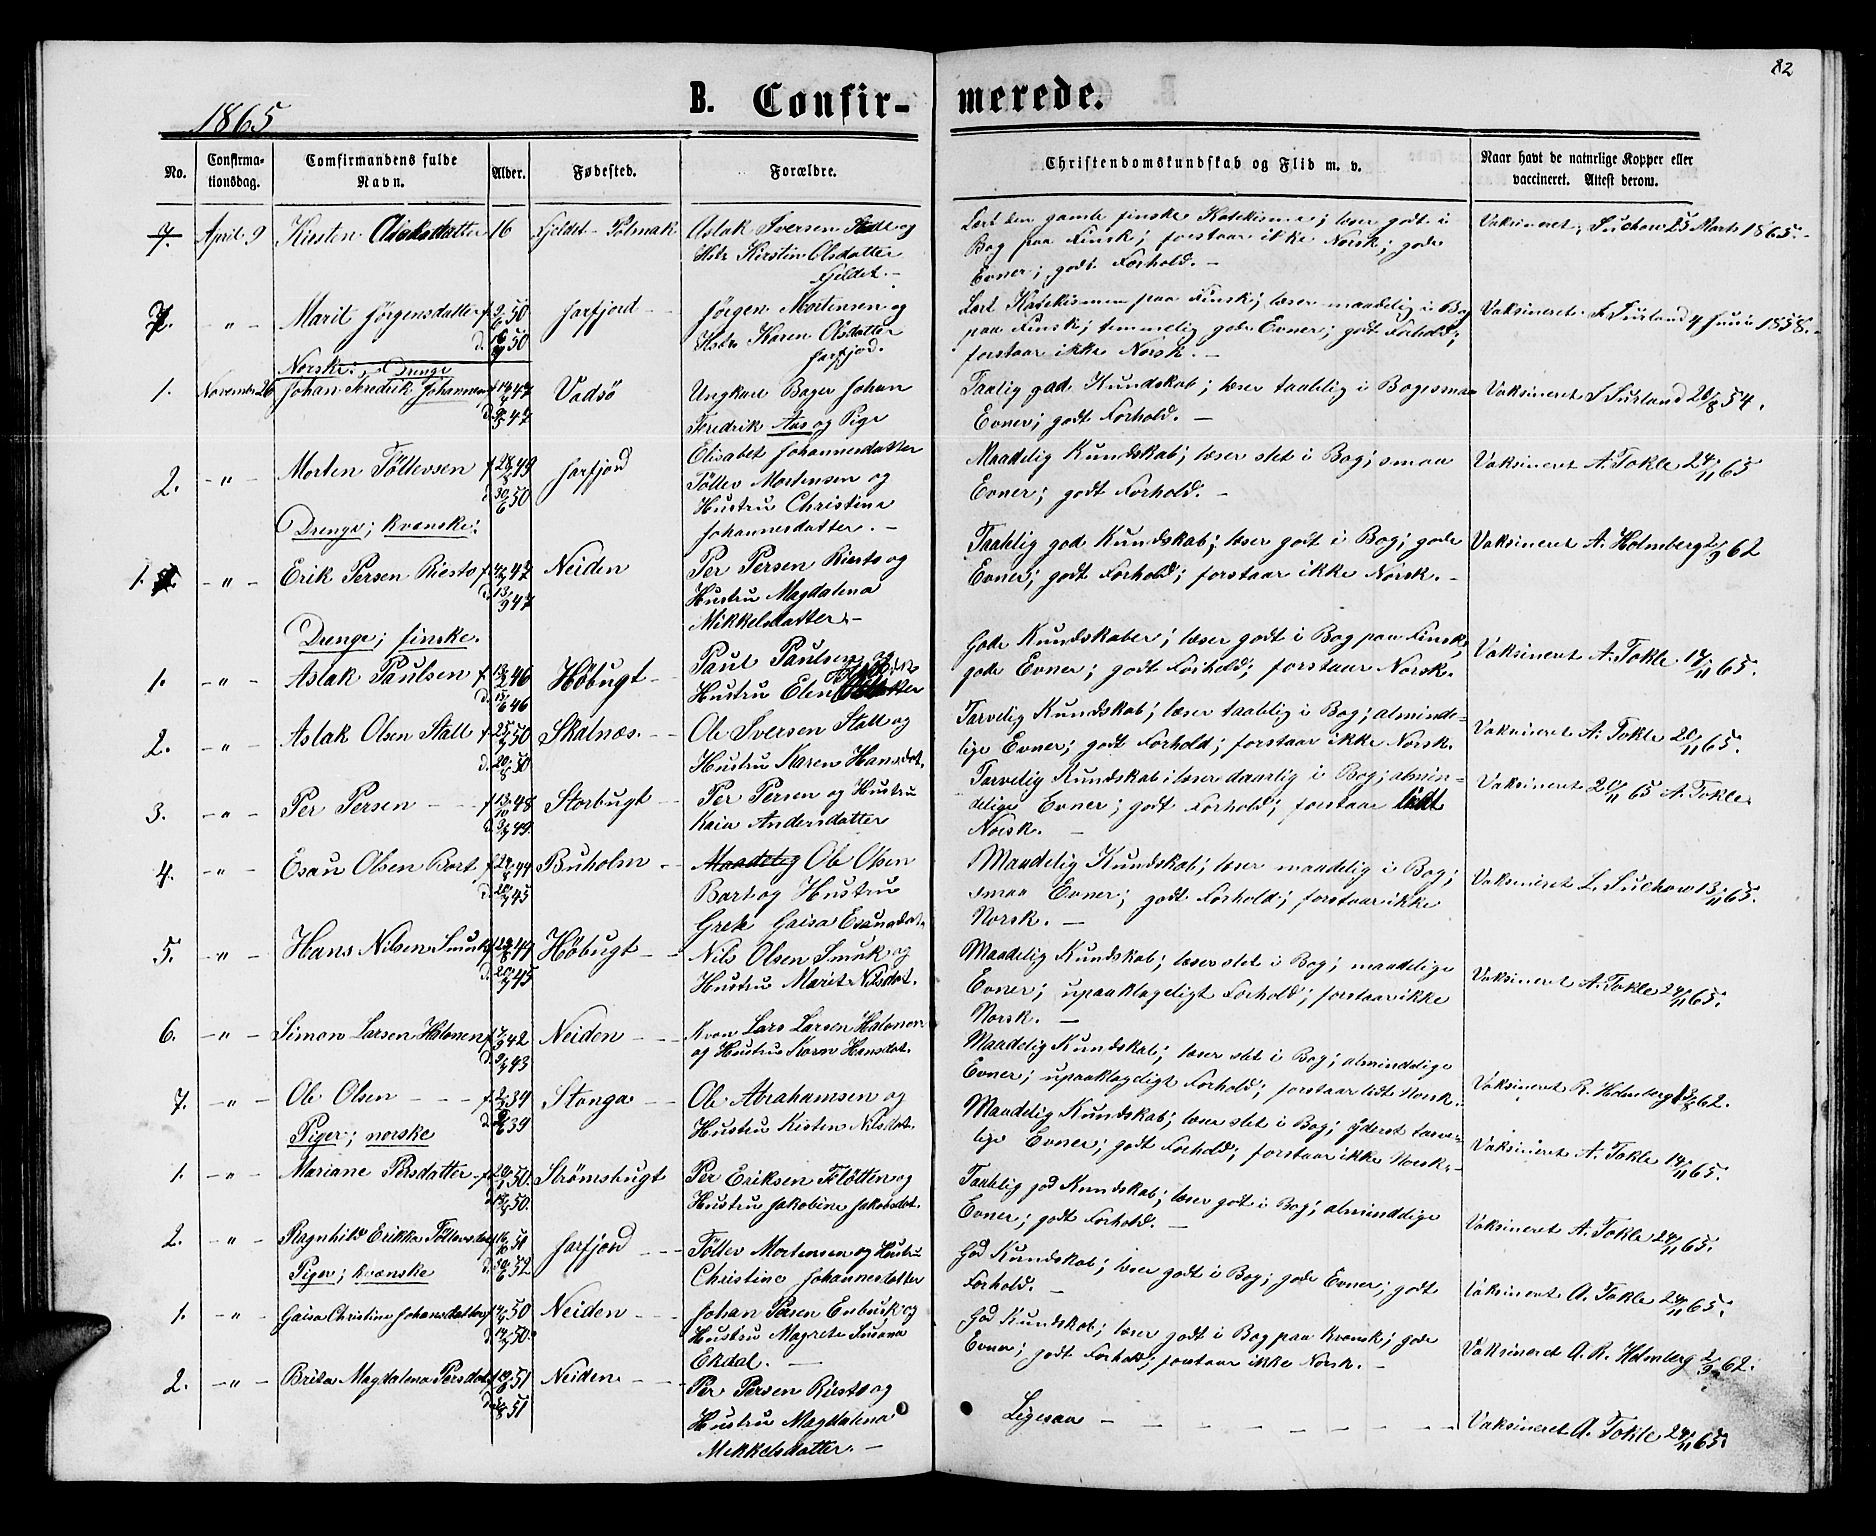 82
1865
B. Confirmerede.
No.
Confirma-
tionsdag.
Comfirmandens fulde
Navn.
Alder.
Fødested.
Forældre.
Christendomskundskab og Flid m. v.
Naar havt de naturlige Kopper eller
vaccineret. Attest derom.
7. April 9 Kirsten Aslaksdatter 16 Fjeldet - Polmak Aslak Iversen og
Hstr. Kirstin Olsdatter
Fjeldet. -
Lært den gamle finske Katekisme; læser godt i
Bog paa Finsk; forstaar ikke Norsk; gode
Evner; godt Forhold. -
Vaksineret, Suchow 25 Marts 1865. -
7. - " - Marit Jørgensdatter Jarfjord - - Jørgen Mortensen og
Hstr. Karen Olsdatter
Jarfjord.
Lært Katekismen paa Finsk; læser maadelig i Bog
paa Finsk; temmelig gode Evner; godt Forhold;
forstaar ikke Norsk. -
Vaksineret Surland 4 Juni 1858. -
Norske: Drenge
1. November 26 Johan Fredrik Johannesen Vadsø Ungkarl Bager Johan
Fredrik Aas og Pige
Elisabet Johannesdatter
Taalig god Kundskab; læser taalelig i Bog; smaa
Evner; godt Forhold. -
Vaksineret Surland 20/8 54.
2. - " - Morten Töllevsen f. 28/8 49 d. 30/6 50 Jarfjord
Töllev Mortensen og
Hustru Christine
Johannesdatter. -
Maadelig Kundskab; læser slet i Bog; smaa
Evner; godt Forhold. -
Vaksineret A. Tokle 24/11 65
Drenge; kvænske:
1. - " - Erik Persen Riesto Neiden Per Persen Riesto og
Hustru Magdalena
Mikkelsdatter. -
Taalelig god Kundskab; læser godt i Bog; gode
Evner; godt Forhold; forstaar ikke Norsk. -
Vaksineret A. Holmberg 2/9 62
Drenge; finske.
1. - " - Aslak Paulsen Høbugt - Paul Paulsen og
Hustru Elen
Gode Kundskaber; læser godt i Bog paa Finsk;
gode Evner; godt Forhold; forstaar Norsk.
Vaksineret A. Tokle 14/11 65.
2. - " - Aslak Olsen Stall Skalnæs. - - Ole Iversen Stall og
Hustru Karen Hansdat.
Tarvelig Kundskab; læser taalelig i Bog; alminde-
lige Evner; godt Forhold; forstaar ikke Norsk.
Vaksineret A. Tokle 20/11 65.
3. - " - Per Persen - - Storbugt - - Per Persen og Hustru
Kaia Andersdatter
Tarvelig Kundskab; læser daarlig i Bog; almin-
delige Evner; godt Forhold; forstaar lidt
Norsk. -
Vaksineret 20/11 65 A. Tokle
4. - " - Esau Olsen Bort Buholm - - Maadelig Ole Olsen
Bort og Hustru
Grete Gaisa Esausdat.
Maadelig Kundskab; læser maadelig i Bog;
smaa Evner; godt Forhold; forstaar ikke
Norsk. -
Vaksineret L. Suchow 13/11 65.
5. - " - Hans Nilsen Smuk Høbugt - - Nils Olsen Smuk og
Hustru Marit Nilsdat.
Maadelig Kundskab; læser slet i Bog; maadelige
Evner; upaaklageligt Forhold; forstaar ikke
Norsk. -
Vaksineret A. Tokle 24/11 65.
6. - " - Simon Larsen Halonen Neiden - - - Kvæn Lars Larsen Halonen
og Hustru Karen Hansdat.
Maadelig Kundskab; læser slet i Bog; almindelige
Evner; upaaklageligt Forhold; forstaar lidt Norsk.
Vaksineret R. Holmberg 62.
7. - " - Ole Olsen - - - Stonga - - Ole Abrahamsen og
Hustru Kisten Nilsdat.
Maadelig Kundskab; læser slet i Bog; yderst tarve-
lige Evner; godt Forhold; forstaar ikke Norsk. -
Vaksineret A. Tokle 14/11 65.
Piger; norske
1. - " - Mariane Persdatter Strømsbugt Per Eriksen Fløtten og
Hustru Jakobine Jakobsdat.
Taalelig god Kundskab; læser godt i Bog; almindelige
Evner; godt Forhold. -
Vaksineret A. Tokle 24/11 65.
2. - " - Ragnhild Erikka Töllevsdat Jarfjord - - - Töllev Mortensen og Hustru
Christine Johannesdatter
God Kundskab; læser godt i Bog; gode Evner; godt
Forhold. -
Vaksineret A. Tokle 24/11 65.
Piger; kvænske
1. - " - Gaisa Christine Johansdatter Neiden - - - Johan Persen Enbusk og
Hustru Magrete Susana
Ekdal. -
God Kundskab; læser godt i Bog paa Kvænsk; gode
Evner; godt Forhold; forstaar ikke Norsk. -
Vaksineret A. R. Holmberg 2/9 62.
2. - " - Brita Magdalena Persdat Neiden. - - - Per Persen Riesto og
Hustru Magdalena
Mikkelsdatter. -
Ligesaa - - - - - - - -
Vaksineret A. Tokle 24/11 65.